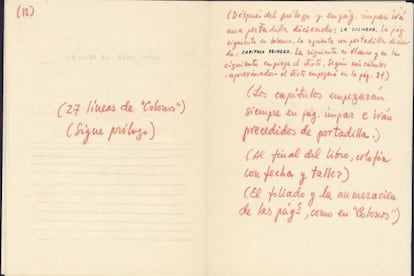 (12)
(27 líneas de "Colonos")
(Sigue prólogo)
(Después del prólogo y en pág. impar irá
una portadilla diciendo: LA COLMENA. La pág.
siguiente en blanco. La siguiente con portadilla dicien-
do: CAPITULO PRIMERO. La siguiente en blanco y en la
siguiente empieza el texto. Según mis cálculos
-aproximados- el texto empezará en la pág. 21)
(Los capítulos empezarán
siempre en pág. impar e irán
precedidos de portadilla.)
(Al final del libro, colofón
con fecha y taller)
(El foliado y la numeración
de las págs, como en "Colonos")